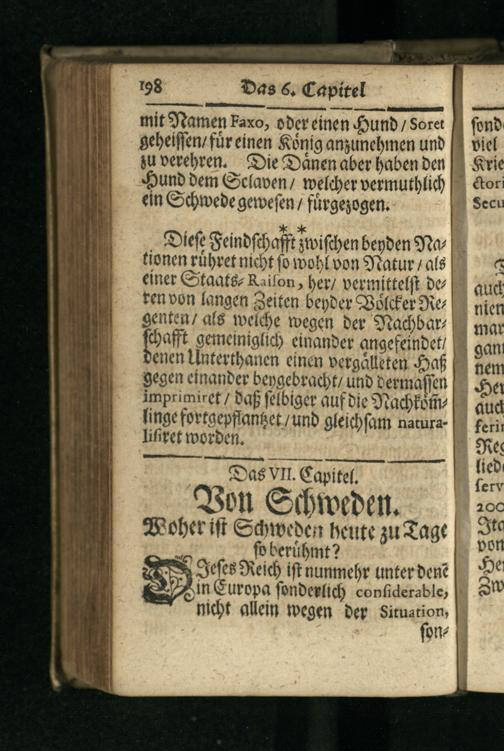 198 Das 6. Capitel
mit Namen Faxo, oder einen Hund / Soret
geheissen / für einen König anzunehmen und
zu verehren. Die Dänen aber haben den
Hund dem Sclaven / welcher vermuthlich
ein Schwede gewesen / fürgezogen.
* *
Diese Feindschafft zwischen beyden Na-
tionen rühret nicht so wohl von Natur / als
einer Staats-Raison, her / vermittelst de-
ren von langen Zeiten beyder Völcker Re-
genten / als welche wegen der Nachbar-
schafft gemeiniglich einander angefeindet /
denen Unterthanen einen vergälleten Haß
gegen einander beygebracht / und dermassen
imprimiret / daß selbiger auf die Nachköm̄-
linge fortgepflantzet / und gleichsam natura-
lisiret worden.
Das VII. Capitel.
Von Schweden.
Woher ist Schweden heute zu Tage
so berühmt?
DIeses Reich ist nunmehr unter denē
in Europa sonderlich considerable,
nicht allein wegen der Situation,
son-
sond
viel
Krie
ctori
Secu
auch
nien
mar
gan
nem
Her
auch
ferir
Reg
lied
serv
200
Ita
von
Her
Zw